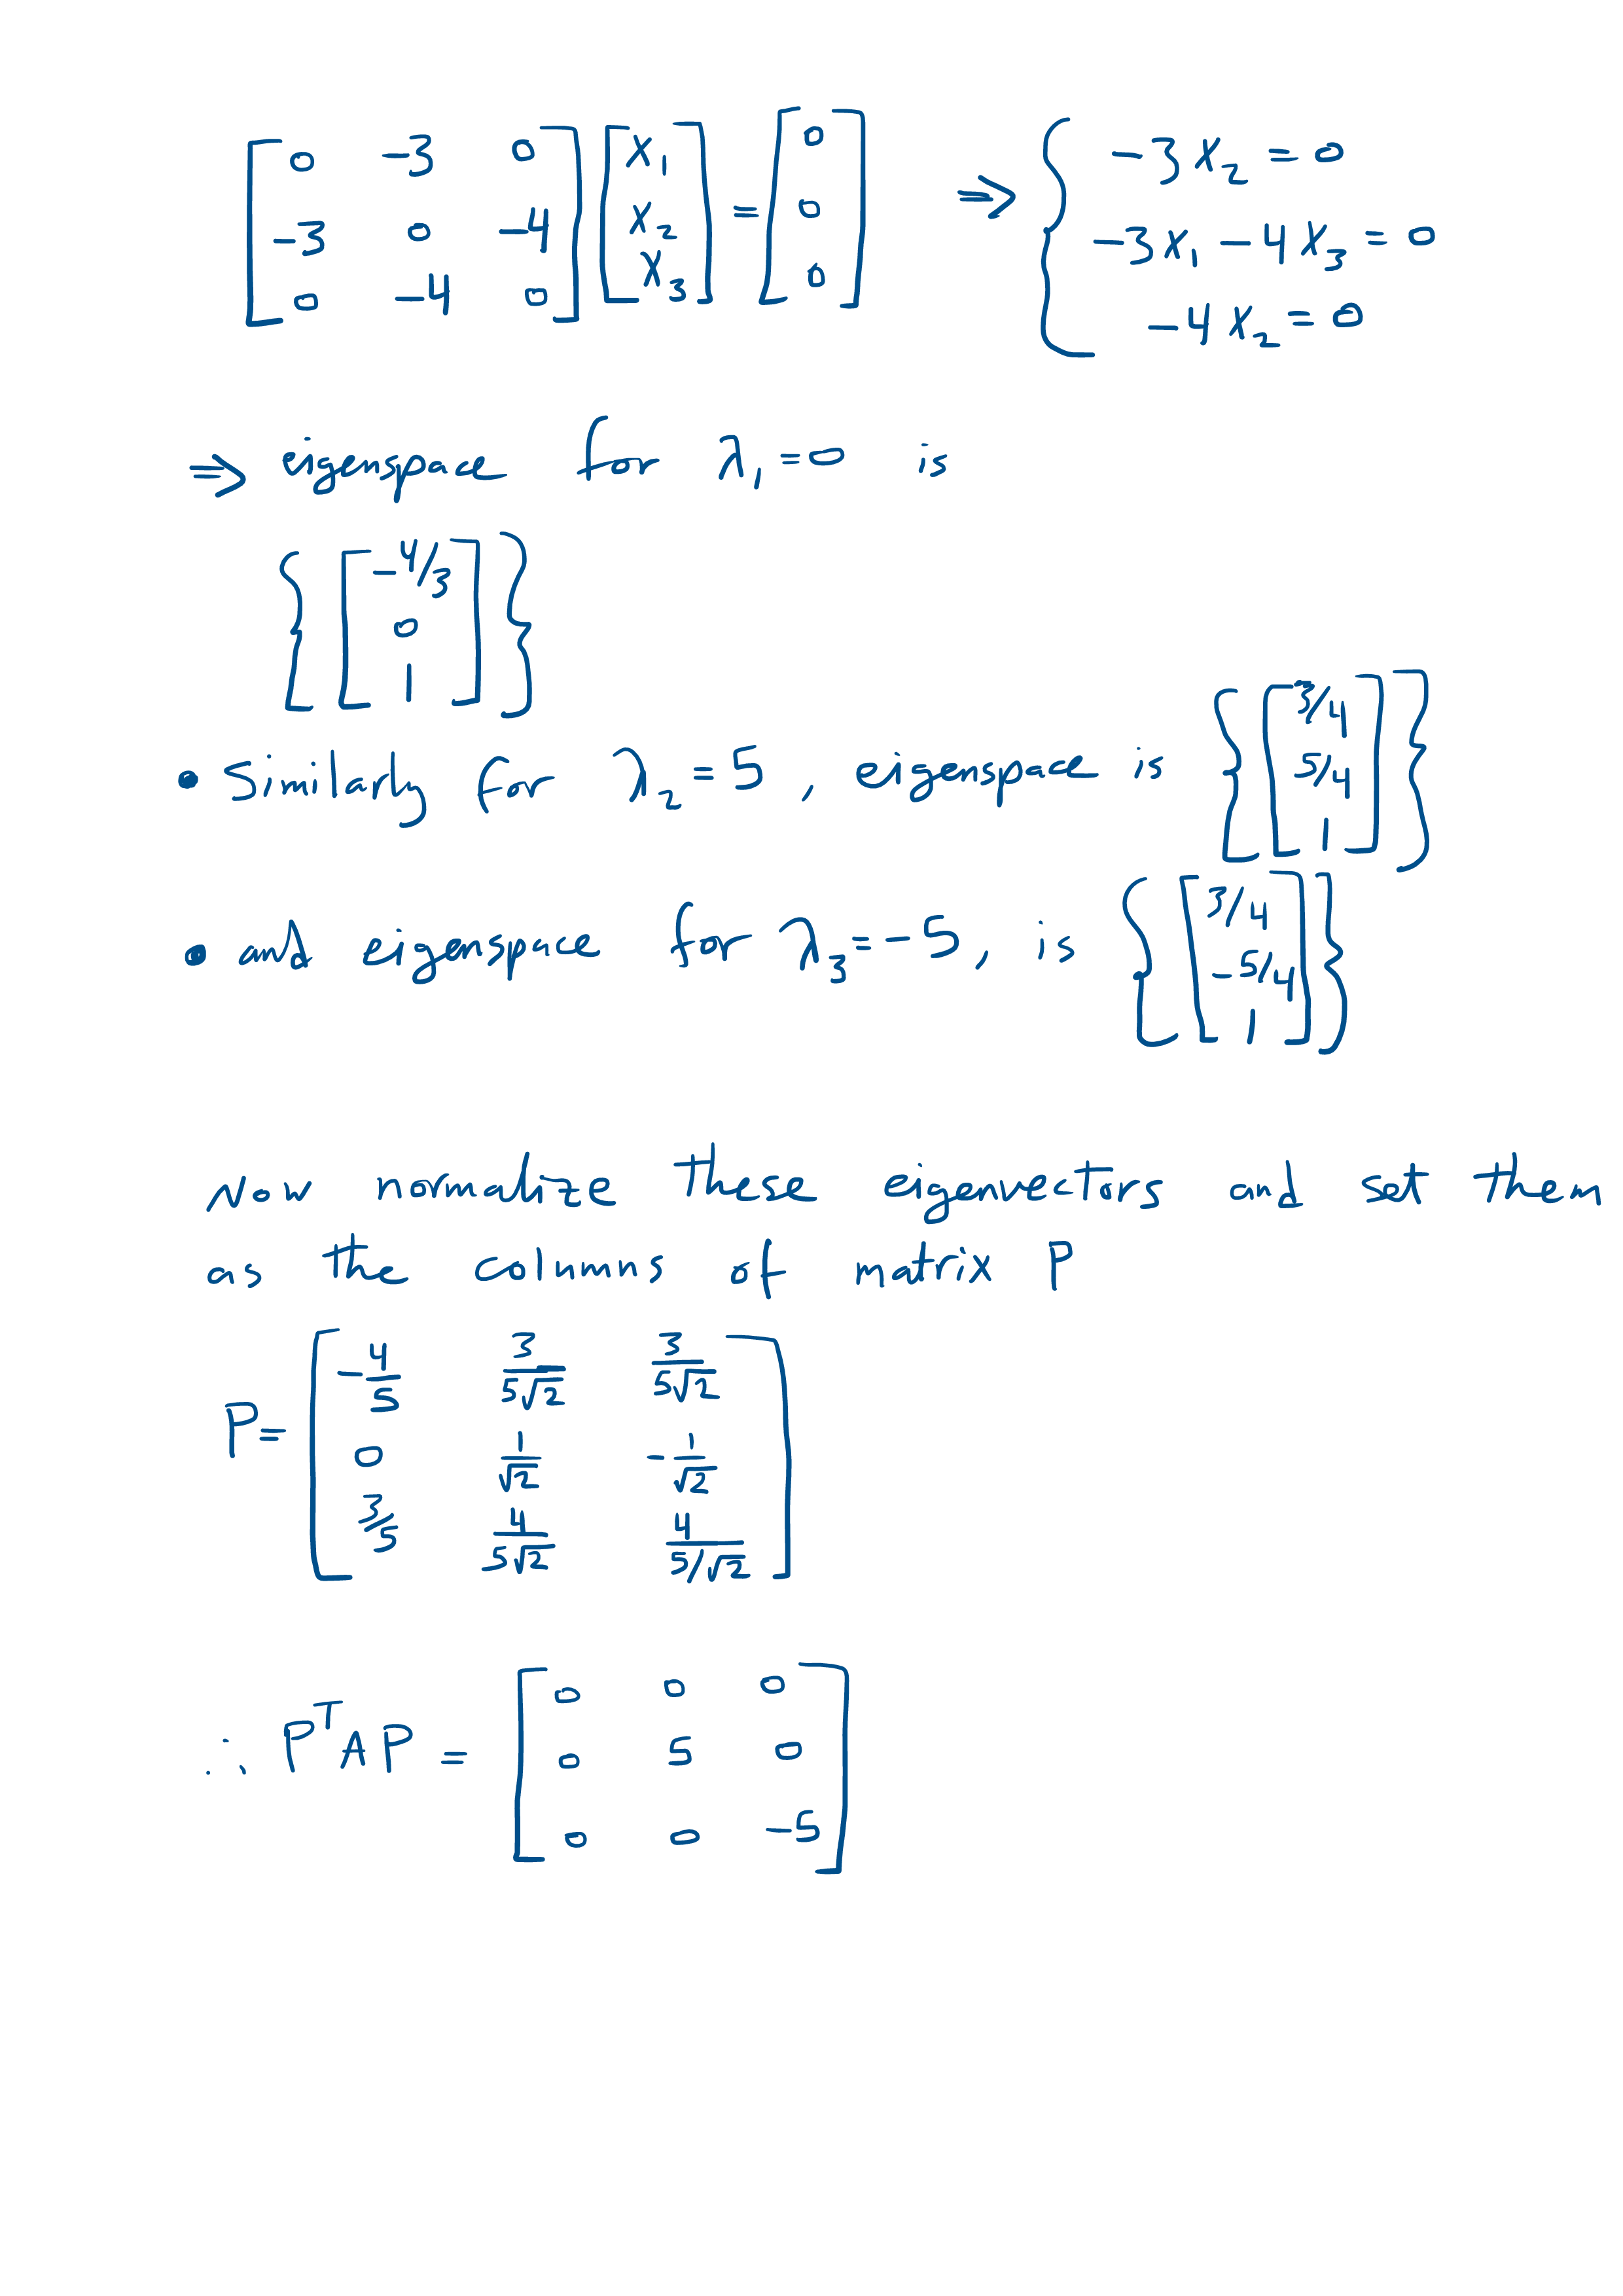 [0 -3 0; -3 0 -4; 0 -4 0] [x₁; x₂; x₃] = [0; 0; 0] ⇒ { -3x₂ = 0; -3x₁ - 4x₃ = 0; -4x₂ = 0
⇒ eigenspace for λ₁ = 0 is
{ [-4/3; 0; 1] }
• Similarly for λ₂ = 5, eigenspace is { [3/4; 5/4; 1] }
• and eigenspace for λ₃ = -5, is { [3/4; -5/4; 1] }
Now normalize these eigenvectors and set them
as the columns of matrix P
P = [-4/5 3/(5√2) 3/(5√2); 0 1/√2 -1/√2; 3/5 4/(5√2) 4/(5/√2)]
∴ PᵀAP = [0 0 0; 0 5 0; 0 0 -5]